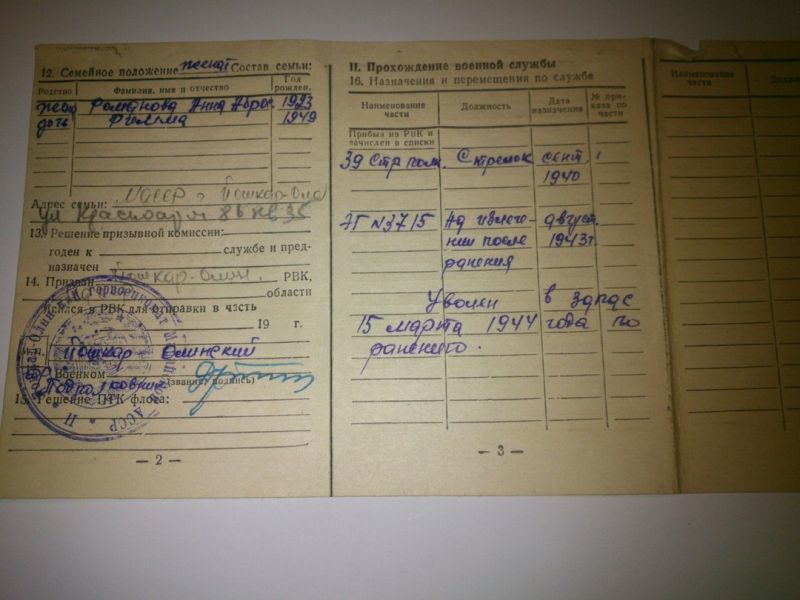 12. Семейное положение женат Состав семьи:
Родство Фамилия, имя и отчество Год рожден.
жена Романова Анна 1923
дочь 1949
Адрес семьи: МАССР г. Йошкар-Ола
ул Красноарм 86 кв 35
13. Решение призывной комиссии:
годен к службе и пред-
назначен
14. Призван Йошкар-Олин. РВК,
области
явился в РВК для отправки в часть
19 г.
Йошкар Олинский
Военком
Подполковник (звание, подпись)
15. Решение ПТК флота:
— 2 —
II. Прохождение военной службы
16. Назначения и перемещения по службе
Наименование части Должность Дата назначения № приказа по части
Прибыл из РВК и
зачислен в списки
39 Стр полк. Стрелок сент.
1940
ЭГ №3715 На излече- август
нии после 1943г.
ранения
Уволен в запас
15 марта 1944 года по
ранению.
— 3 —
Наименование
части